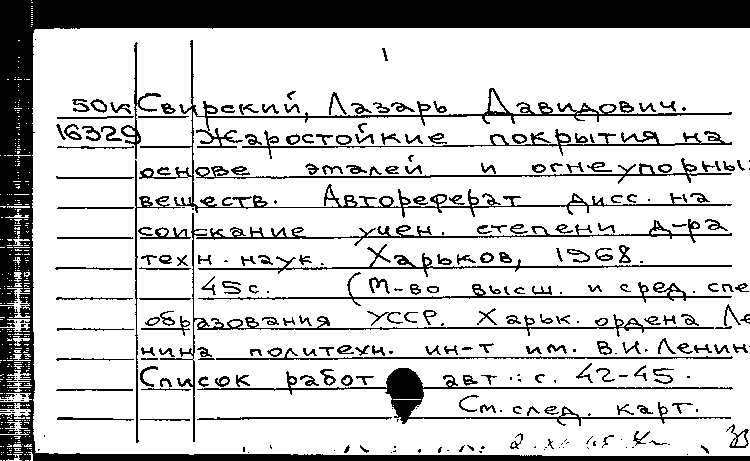 1
50к Свирский, Лазарь Давидович.
16329 Жаростойкие покрытия на
основе эмалей и огнеупорны
веществ. Автореферат дисс. на
соискание учен. степени д-ра
техн. наук. Харьков, 1968.
45с. (М-во высш. и сред. спе
образования УССР. Харьк. ордена Ле
нина политехн. ин-т им. В.И. Ленин
Список работ авт.: с. 42-45.
См. след. карт.